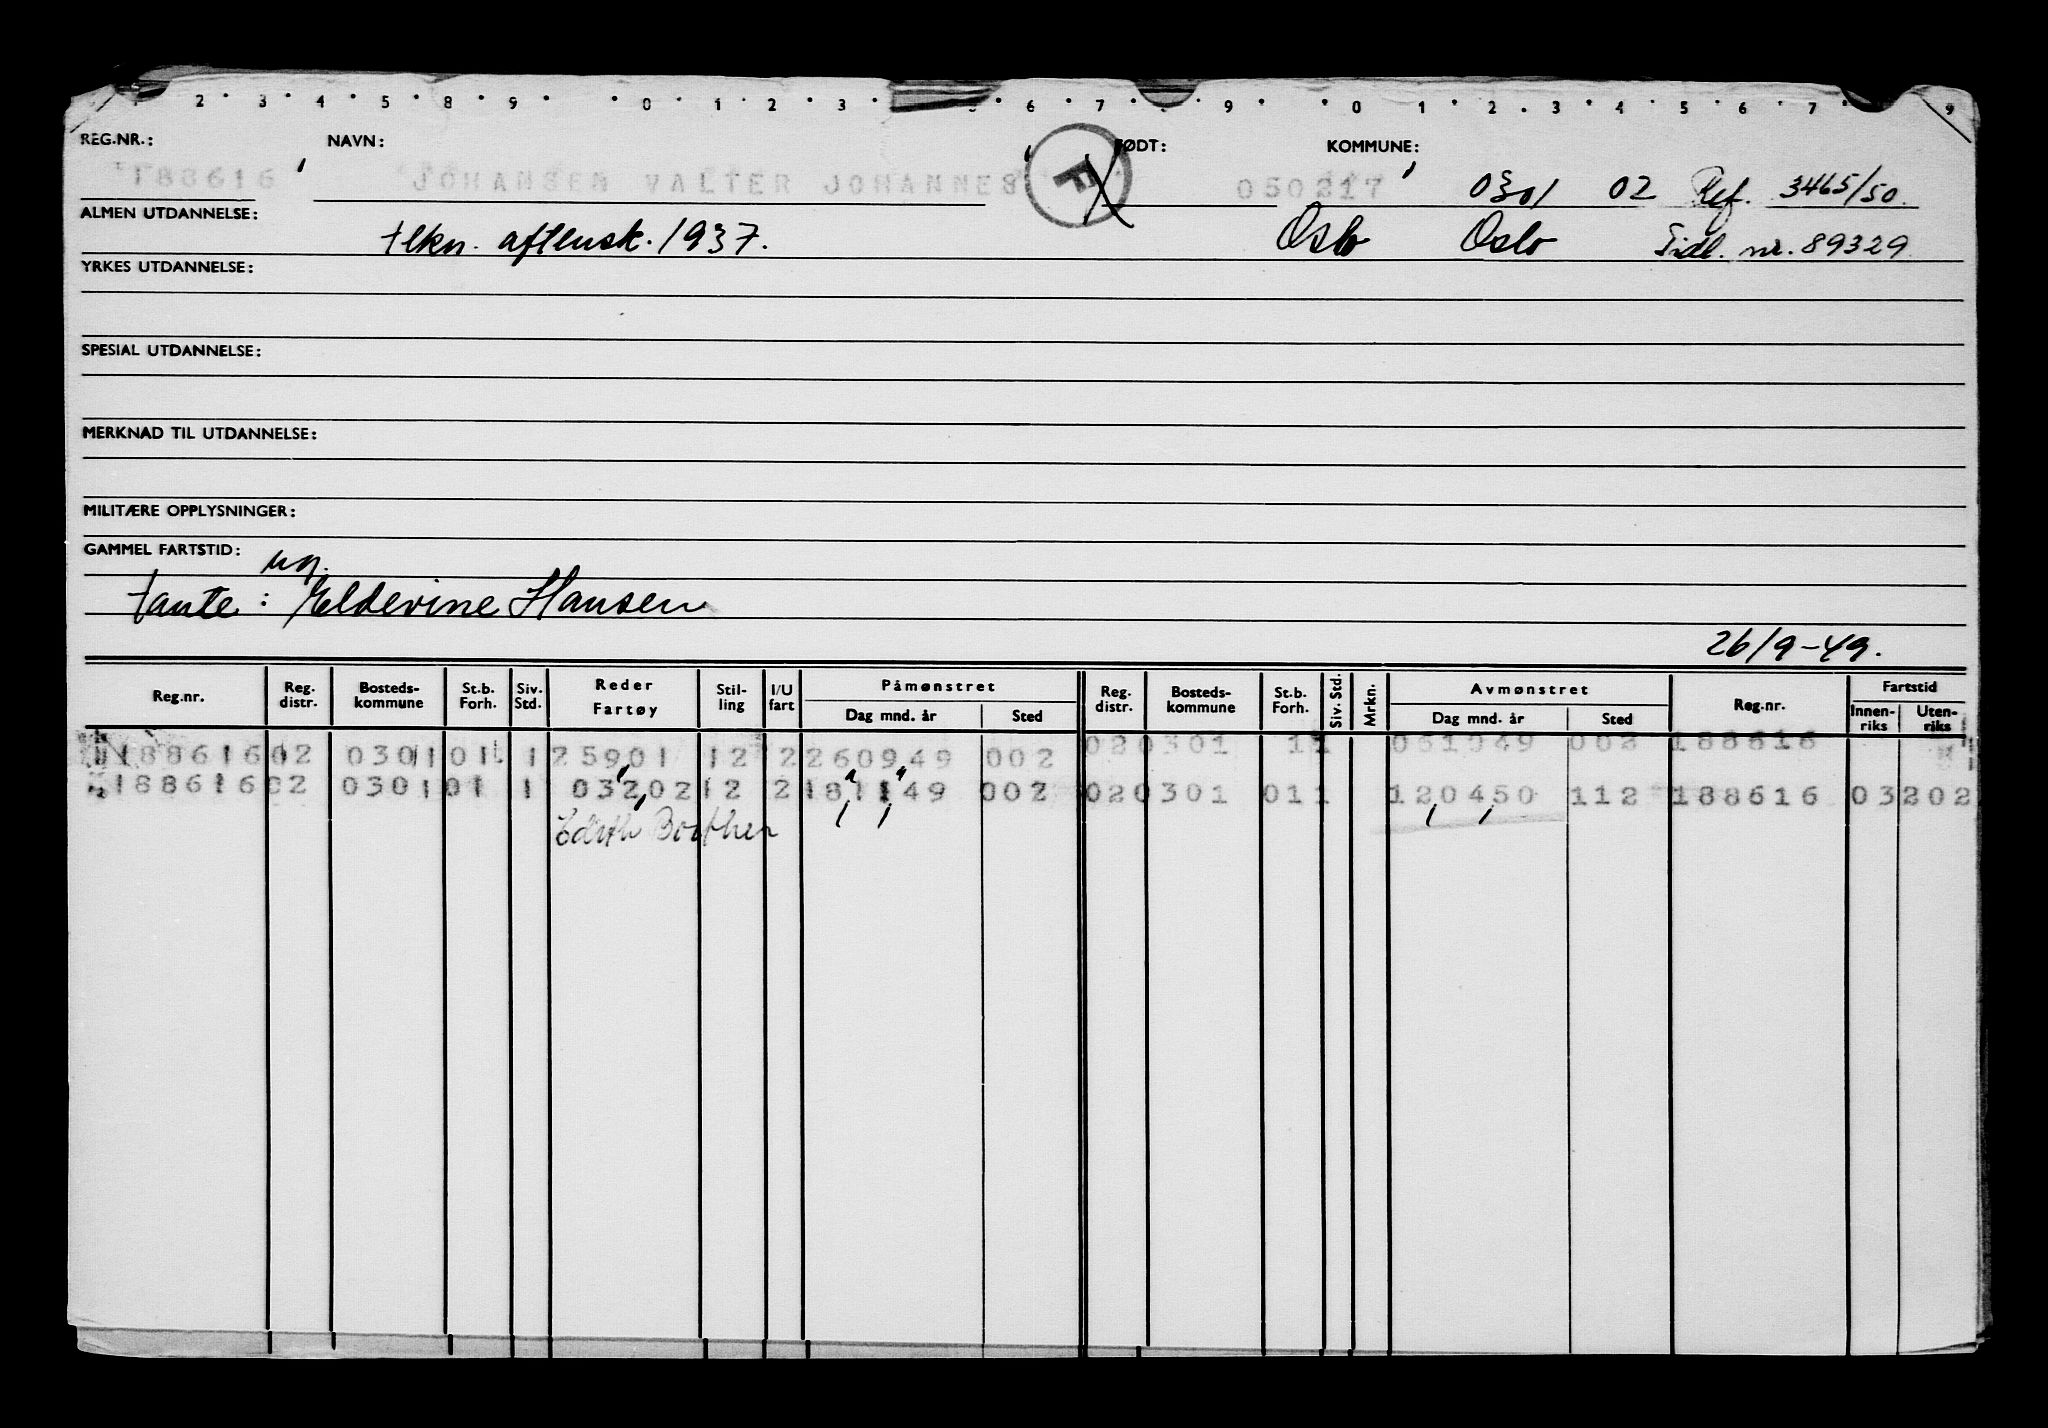 2 3 4 5 8 9 0 1 2 3 5 6 7 9 0 1 2 3 4 5 6 7 9
REG.NR.: NAVN: FØDT: KOMMUNE:
188616 JOHANSEN VALTER JOHANNES F 050217 0301 02 Ref. 3465/50.
ALMEN UTDANNELSE: tlkn. aftensk. 1937. Oslo Oslo Tidl. nr. 89329
YRKES UTDANNELSE:
SPESIAL UTDANNELSE:
MERKNAD TIL UTDANNELSE:
MILITÆRE OPPLYSNINGER:
GAMMEL FARTSTID:
ug.
tante: Eldevine Hansen
26/9-49.
Reg.nr. Reg. distr. Bosteds-kommune St.b. Forh. Siv. Std. Reder Fartøy Stil-ling I/U fart Påmønstret Dag mnd. år Sted Reg. distr. Bosteds-kommune St.b. Forh. Siv. Std. Mrkn. Avmønstret Dag mnd. år Sted Reg.nr. Fartstid Innen-riks Uten-riks
188616 02 0301 01 1 25901 12 2 260949 002 02 0301 1 1 061049 002 188616
188616 02 0301 01 1 03202 12 2 181149 002 02 0301 01 1 120450 112 188616 03202
Edith Borthen